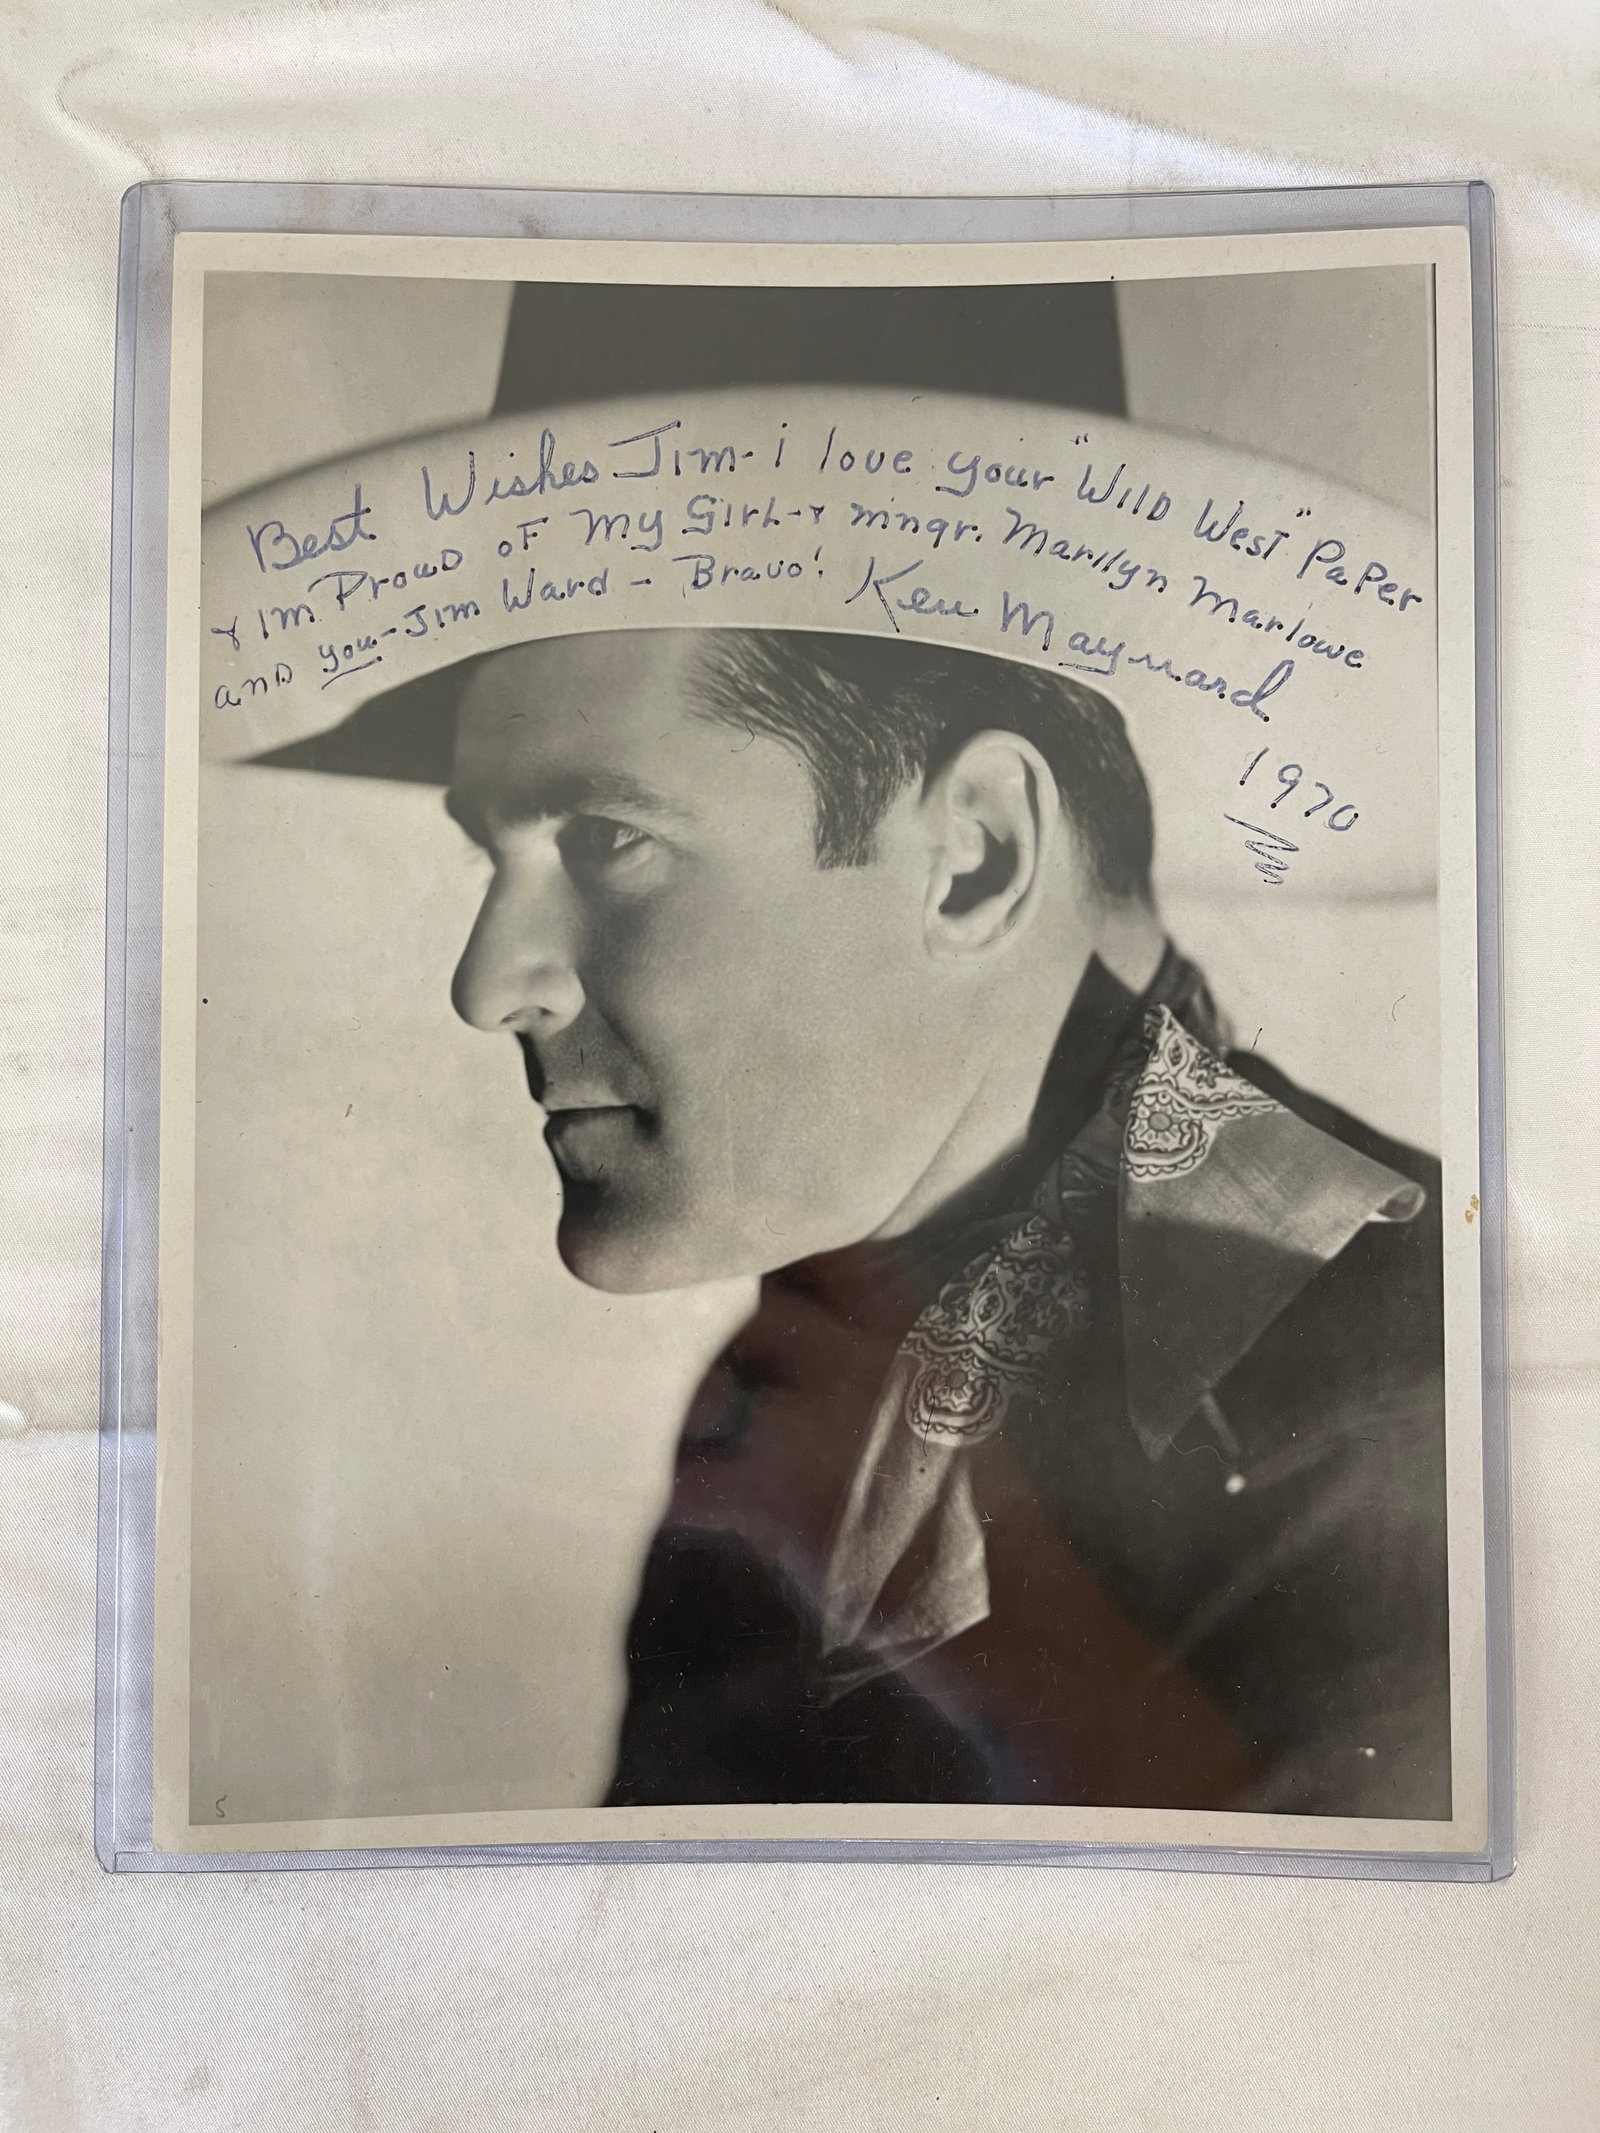 Best Wishes Jim - i love your "Wild West" Paper
& Im Proud of My Girl - & mngr. Marilyn Marlowe
and you - Jim Ward - Bravo! Ken Maynard
1970
5